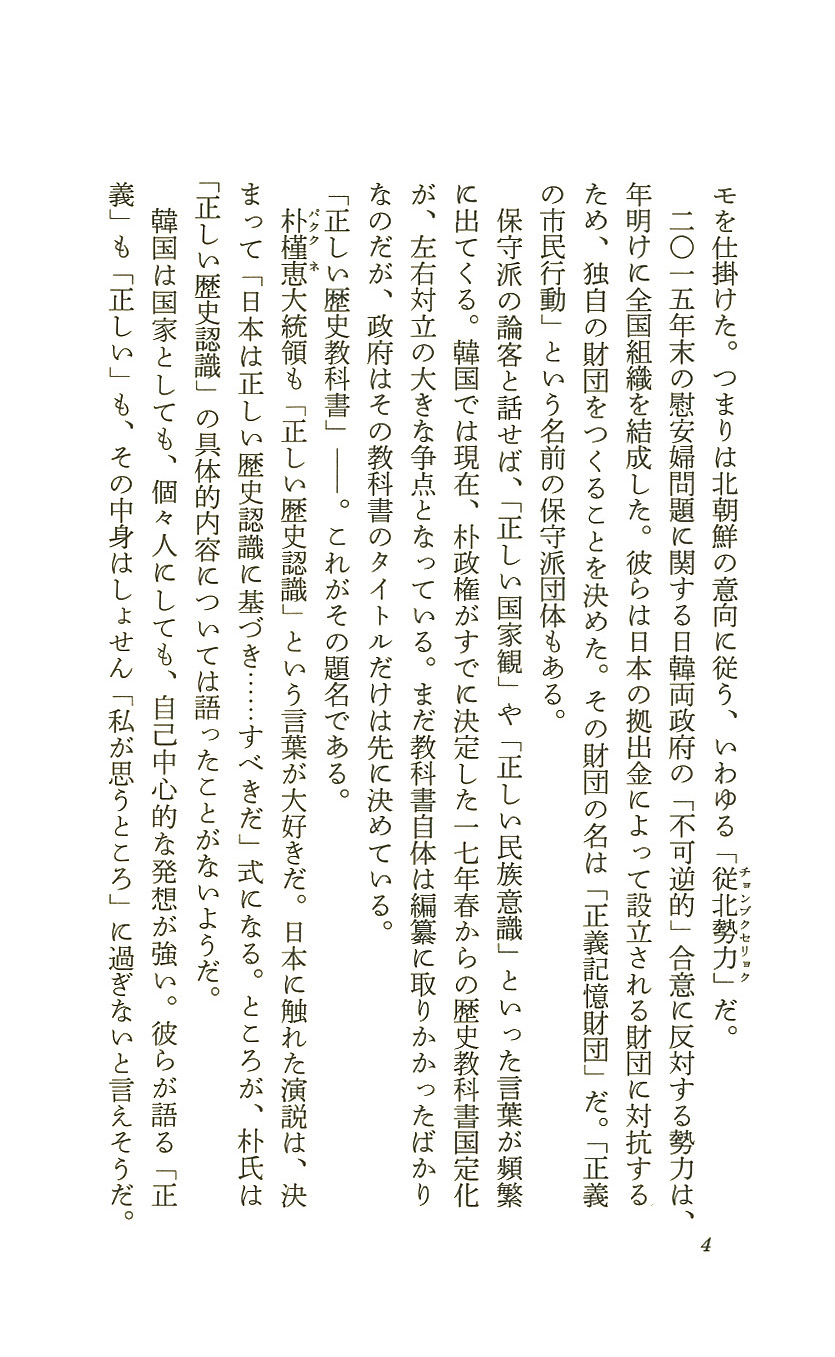 モを仕掛けた。つまりは北朝鮮の意向に従う、いわゆる「従北勢力」だ。
チョンブクセリョク
二〇一五年末の慰安婦問題に関する日韓両政府の「不可逆的」合意に反対する勢力は、
年明けに全国組織を結成した。彼らは日本の拠出金によって設立される財団に対抗する
ため、独自の財団をつくることを決めた。その財団の名は「正義記憶財団」だ。「正義
の市民行動」という名前の保守派団体もある。
保守派の論客と話せば、「正しい国家観」や「正しい民族意識」といった言葉が頻繁
に出てくる。韓国では現在、朴政権がすでに決定した一七年春からの歴史教科書国定化
が、左右対立の大きな争点となっている。まだ教科書自体は編纂に取りかかったばかり
なのだが、政府はその教科書のタイトルだけは先に決めている。
「正しい歴史教科書」――。これがその題名である。
朴槿恵大統領も「正しい歴史認識」という言葉が大好きだ。日本に触れた演説は、決
パククネ
まって「日本は正しい歴史認識に基づき……すべきだ」式になる。ところが、朴氏は
「正しい歴史認識」の具体的内容については語ったことがないようだ。
韓国は国家としても、個々人にしても、自己中心的な発想が強い。彼らが語る「正
義」も「正しい」も、その中身はしょせん「私が思うところ」に過ぎないと言えそうだ。
4